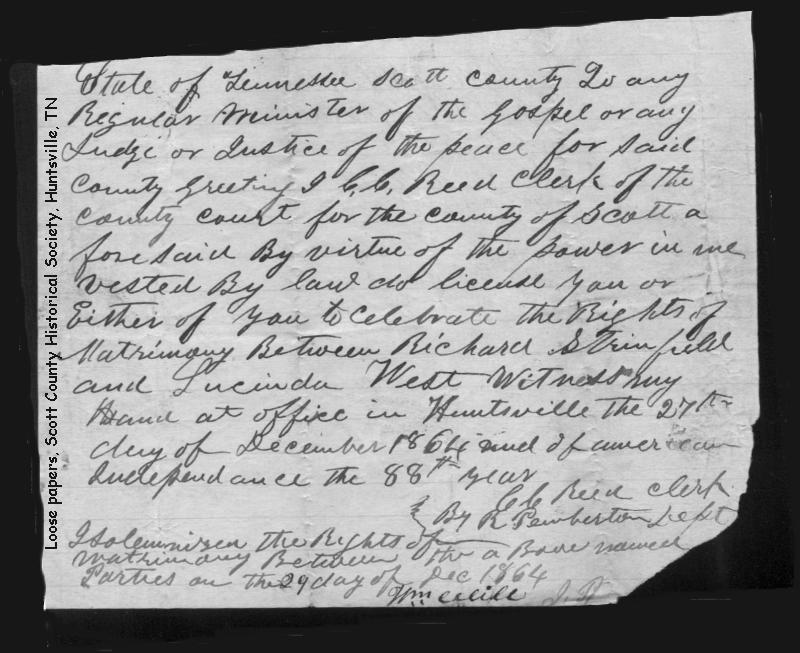 State of Tennessee Scott county To any
Regular Minister of the Gospel or any
Judge or Justice of the peace for said
County Greeting I C, C, Reed Clerk of the
county court for the county of Scott a
fore said By virtue of the power in me
vested By law do license you or
Either of you to celebrate the Rights of
Matrimony Between Richard Strinfield
and Lucinda West Witness my
Hand at office in Huntsville the 27th
day of December 1864 and of american
Independance the 88th year
C C Reed Clerk
By R Pemberton Dept
I Solemnizen the Rights of
Matrimony Between the a Bove named
Parties on the 29 day of Dec 1864
Wm
Loose papers, Scott County Historical Society, Huntsville, TN